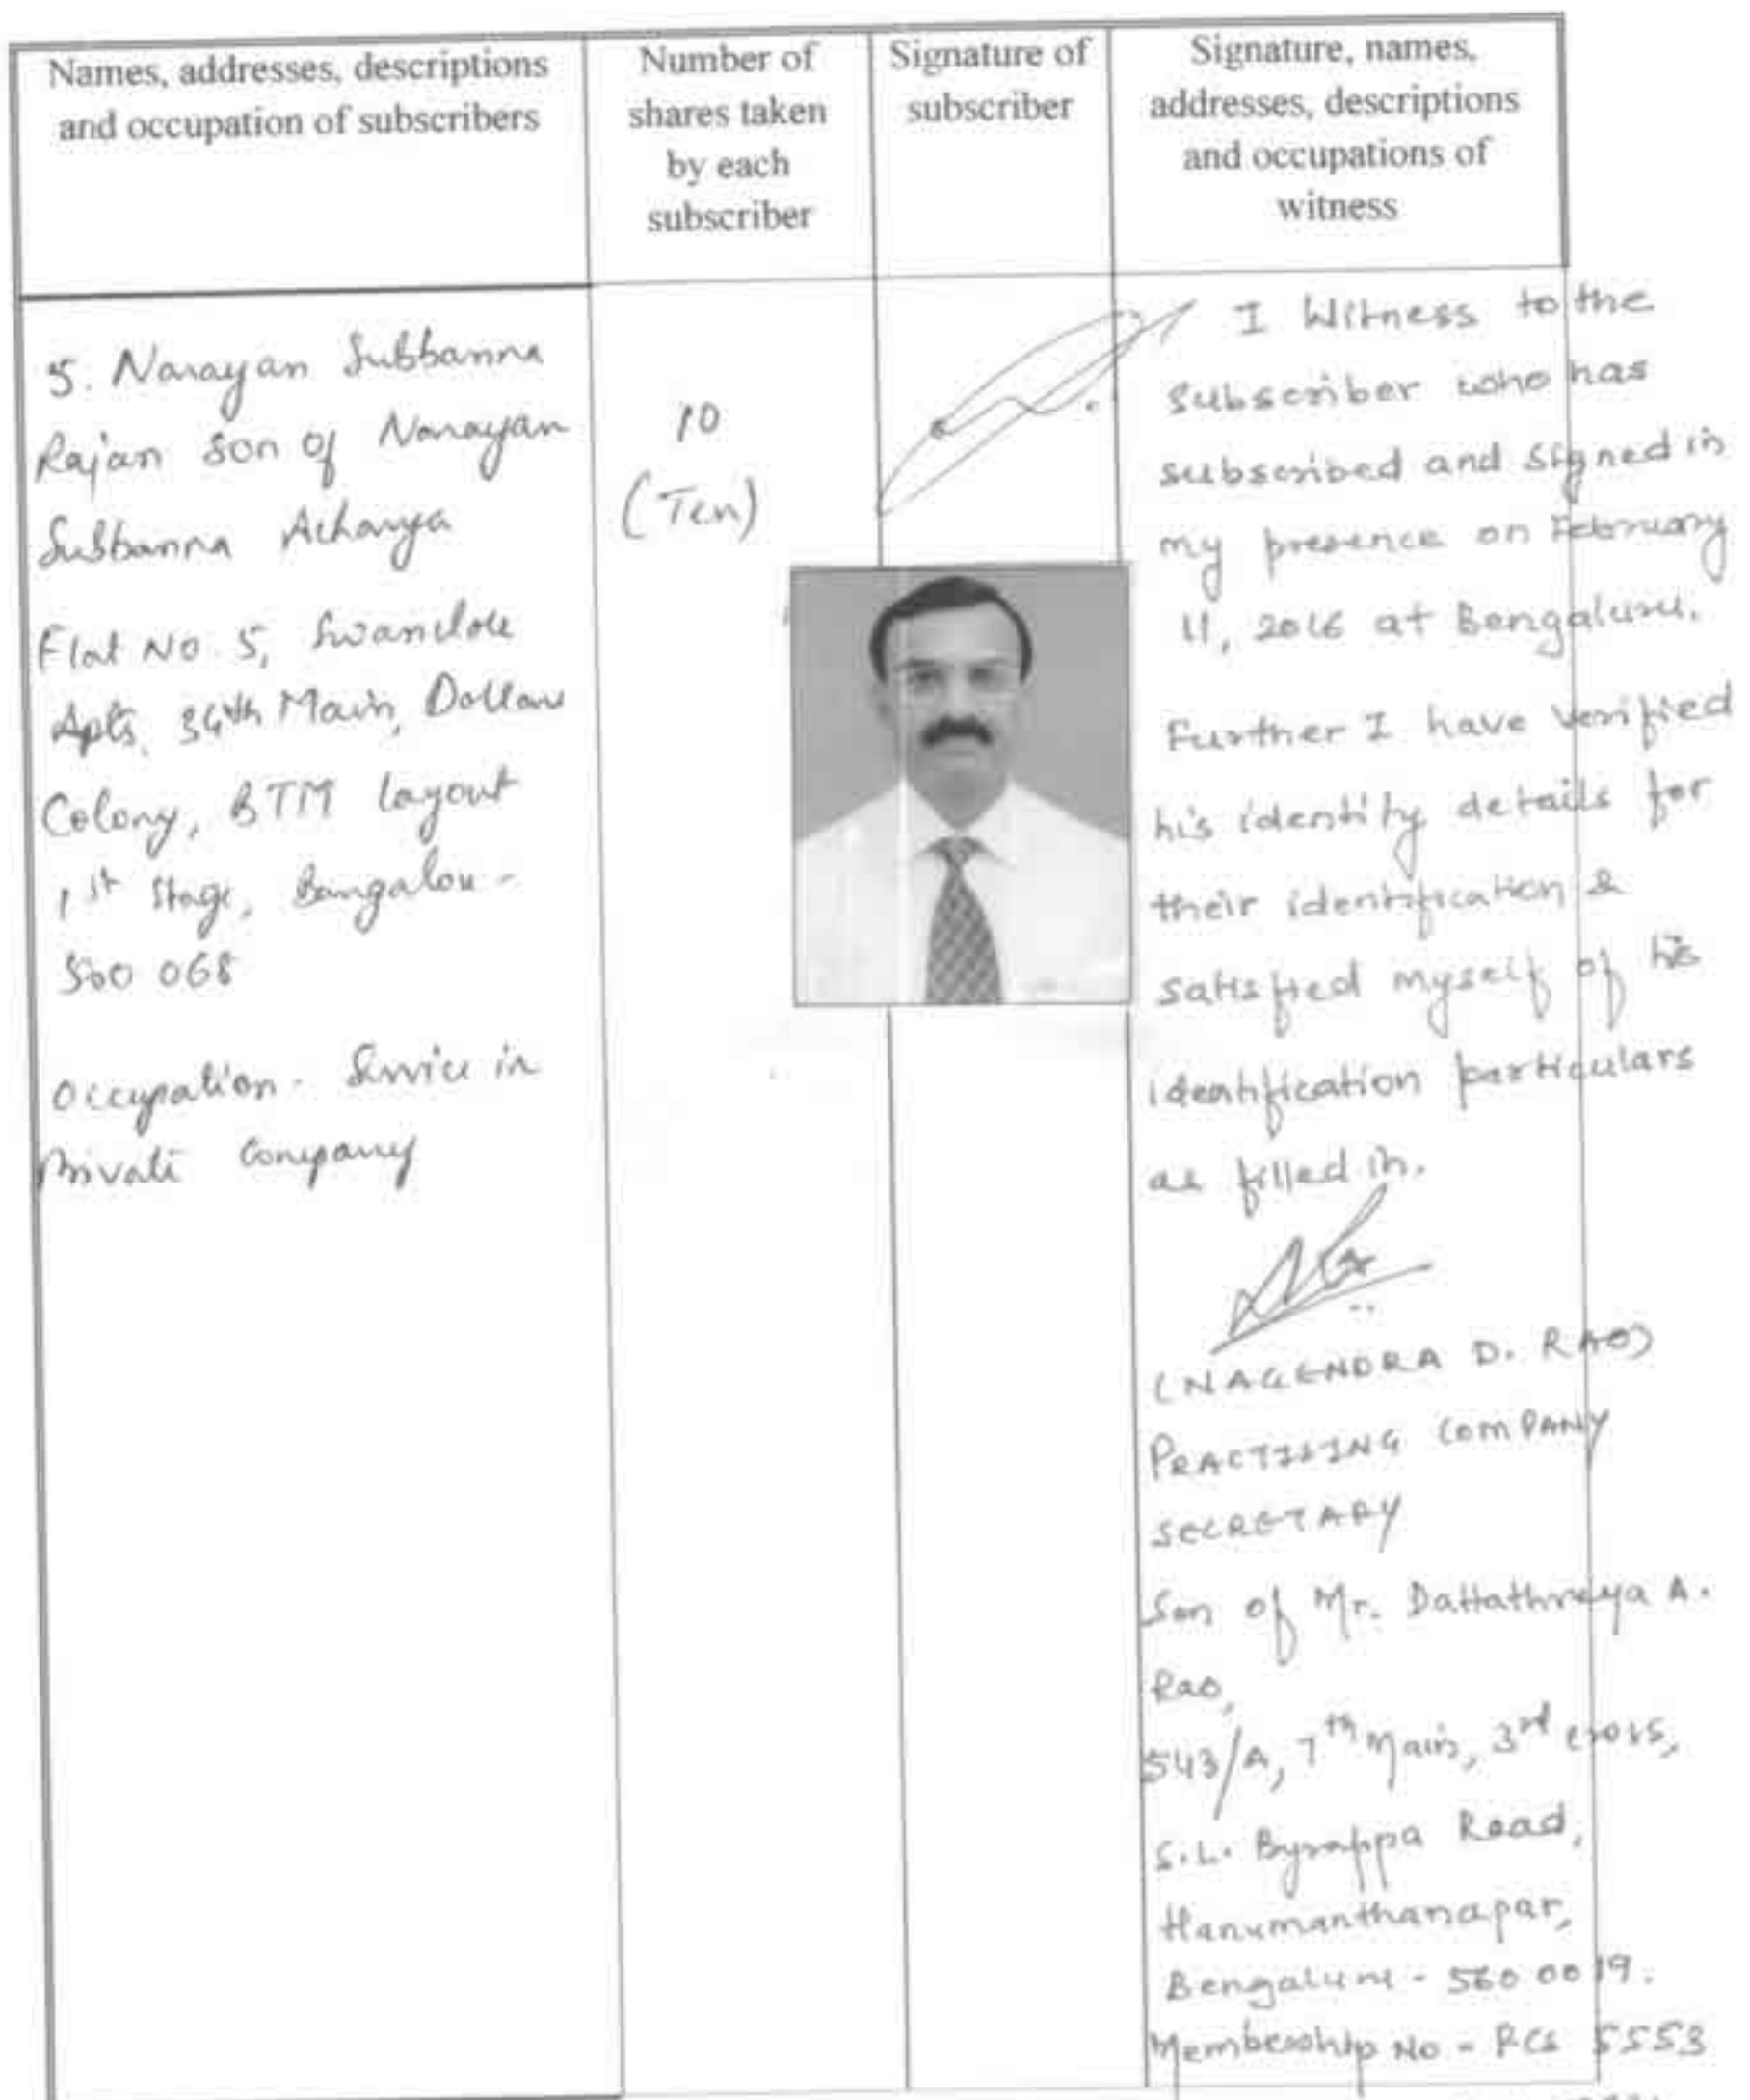 Names, addresses, descriptions
and occupation of subscribers
Number of
shares taken
by each
subscriber
Signature of
subscriber
Signature, names,
addresses, descriptions
and occupations of
witness
5. Narayan Subbanna
Rajan son of Narayan
Subbanna Acharya
Flat No. 5,
Apts, 34th Main, Dollars
Colony, BTM layout
1st Stage, Bangalore -
560 068
Occupation - Service in
Private Company
10
(Ten)
I Witness to the
subscriber who has
subscribed and signed in
my presence on February
11, 2016 at Bengaluru.
Further I have verified
his identity details for
their identification &
satisfied myself of his
identification particulars
as filled in.
(NAGENDRA D. RAO)
PRACTISING COMPANY
SECRETARY
Son of Mr. Dattathreya A.
Rao,
543/A, 7th Main, 3rd Cross,
S.L. Byrappa Road,
Hanumanthanagar,
Bengaluru - 560 0019.
Membership No - FCS 5553